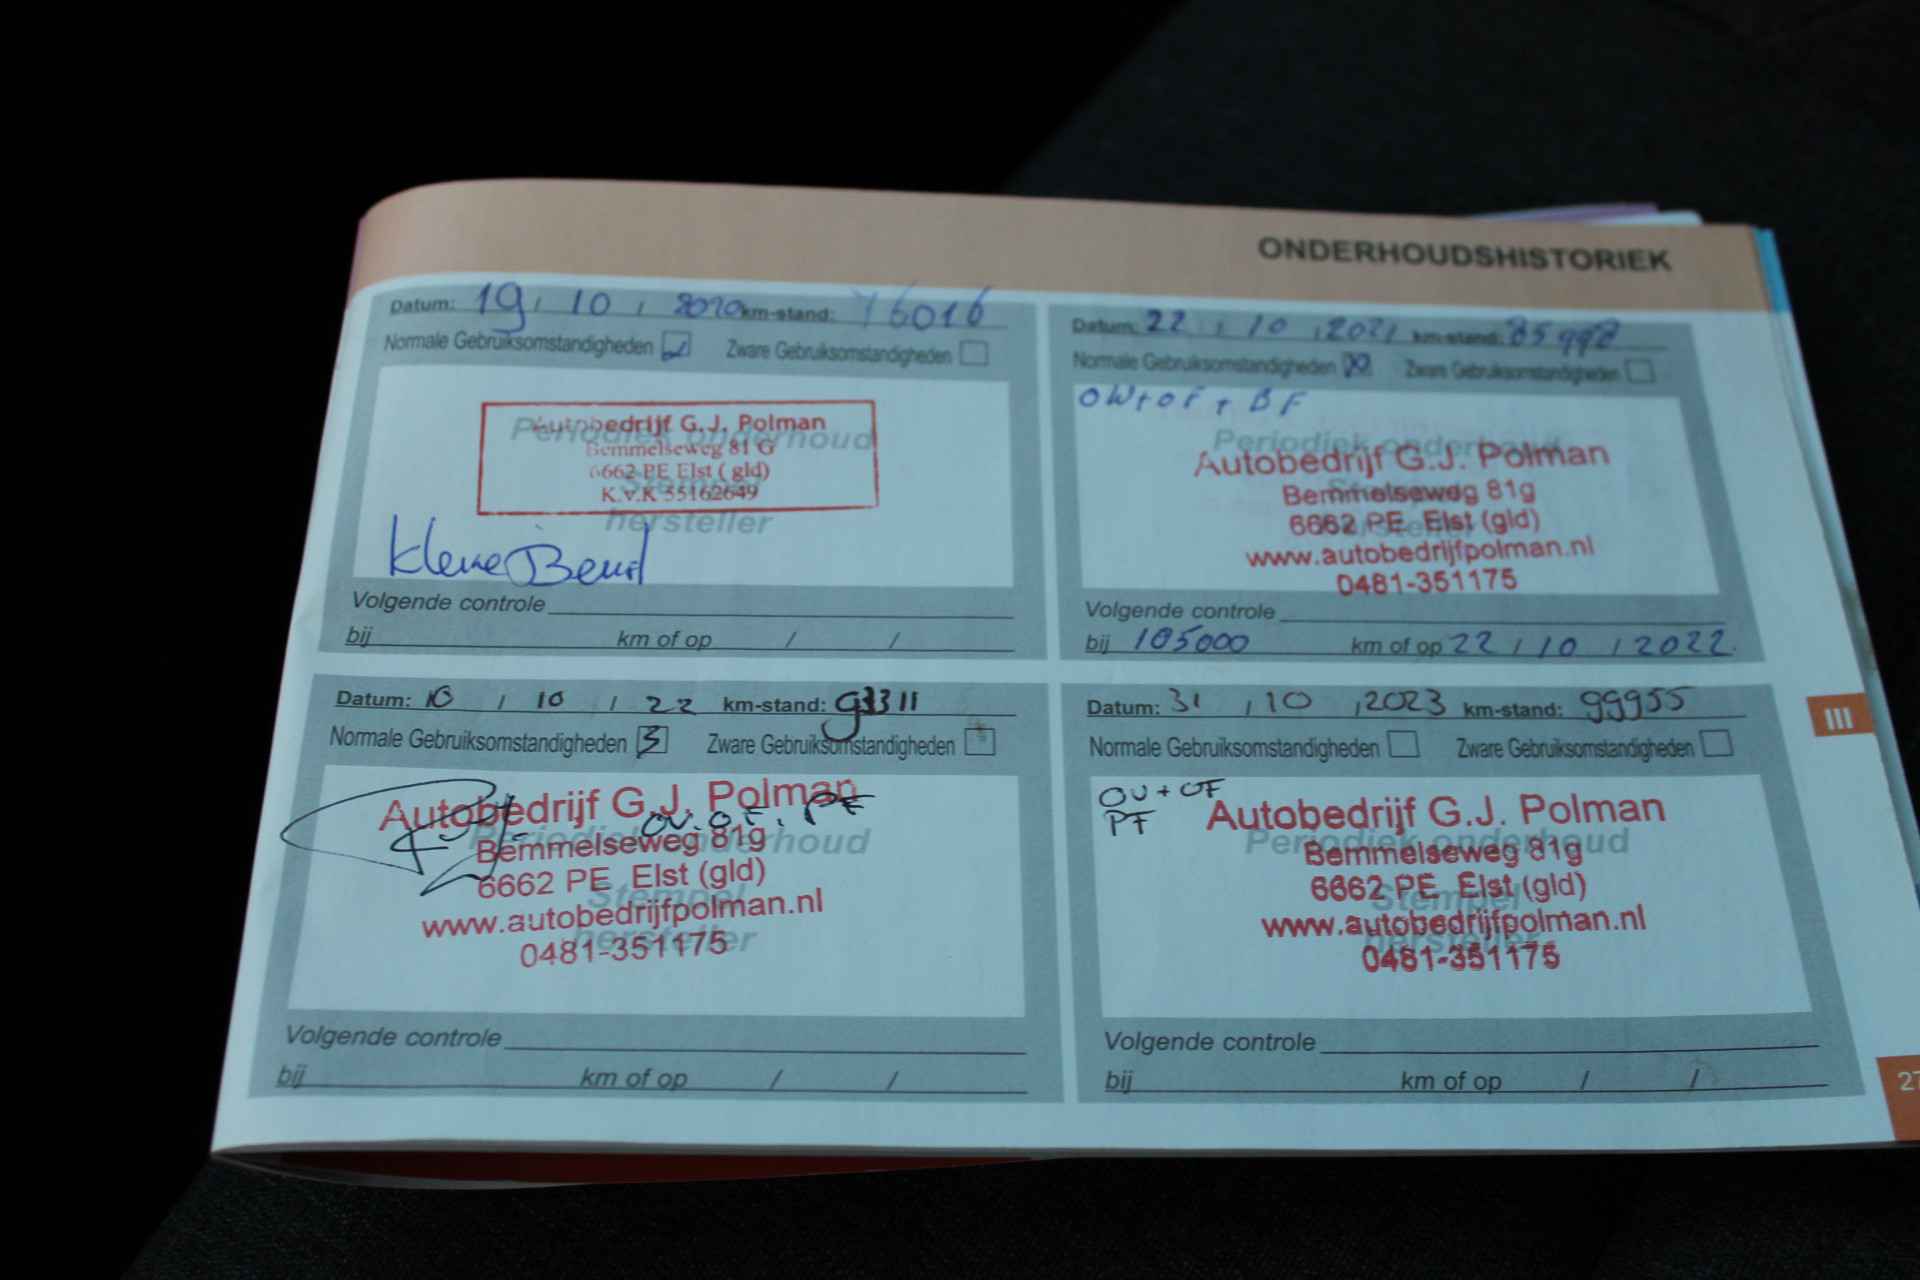 ONDERHOUDSHISTORIEK
Datum: 19 / 10 / 2020 km-stand: 76016
Normale Gebruiksomstandigheden Zware Gebruiksomstandigheden
Periodiek onderhoud
Stempel
hersteller
Autobedrijf G.J. Polman
Bemmelseweg 81 G
6662 PE Elst ( gld)
K.v.K 55162649
Volgende controle
bij km of op / /
Datum: 22 / 10 / 2021 km-stand: 85998
Normale Gebruiksomstandigheden Zware Gebruiksomstandigheden
OW + OF + BF
Periodiek onderhoud
Stempel
hersteller
Autobedrijf G.J. Polman
Bemmelseweg 81g
6662 PE Elst (gld)
www.autobedrijfpolman.nl
0481-351175
Volgende controle
bij 105000 km of op 22 / 10 / 2022
Datum: 10 / 10 / 22 km-stand: 93311
Normale Gebruiksomstandigheden Zware Gebruiksomstandigheden
OV. OF. PF
Periodiek onderhoud
Stempel
hersteller
Autobedrijf G.J. Polman
Bemmelseweg 81g
6662 PE Elst (gld)
www.autobedrijfpolman.nl
0481-351175
Volgende controle
bij km of op / /
Datum: 31 / 10 / 2023 km-stand: 99955
Normale Gebruiksomstandigheden Zware Gebruiksomstandigheden
OV + OF
PF
Periodiek onderhoud
Stempel
hersteller
Autobedrijf G.J. Polman
Bemmelseweg 81g
6662 PE Elst (gld)
www.autobedrijfpolman.nl
0481-351175
Volgende controle
bij km of op / /
III
27